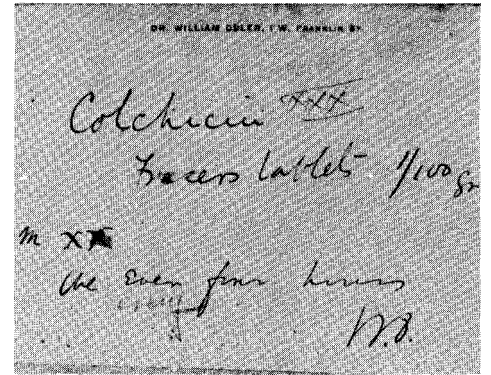 DR. WILLIAM OSLER, 1 W. FRANKLIN ST.
Colchicin xxx
Frasers tablets 1/100 gr
m xx
One every four hours
W.O.